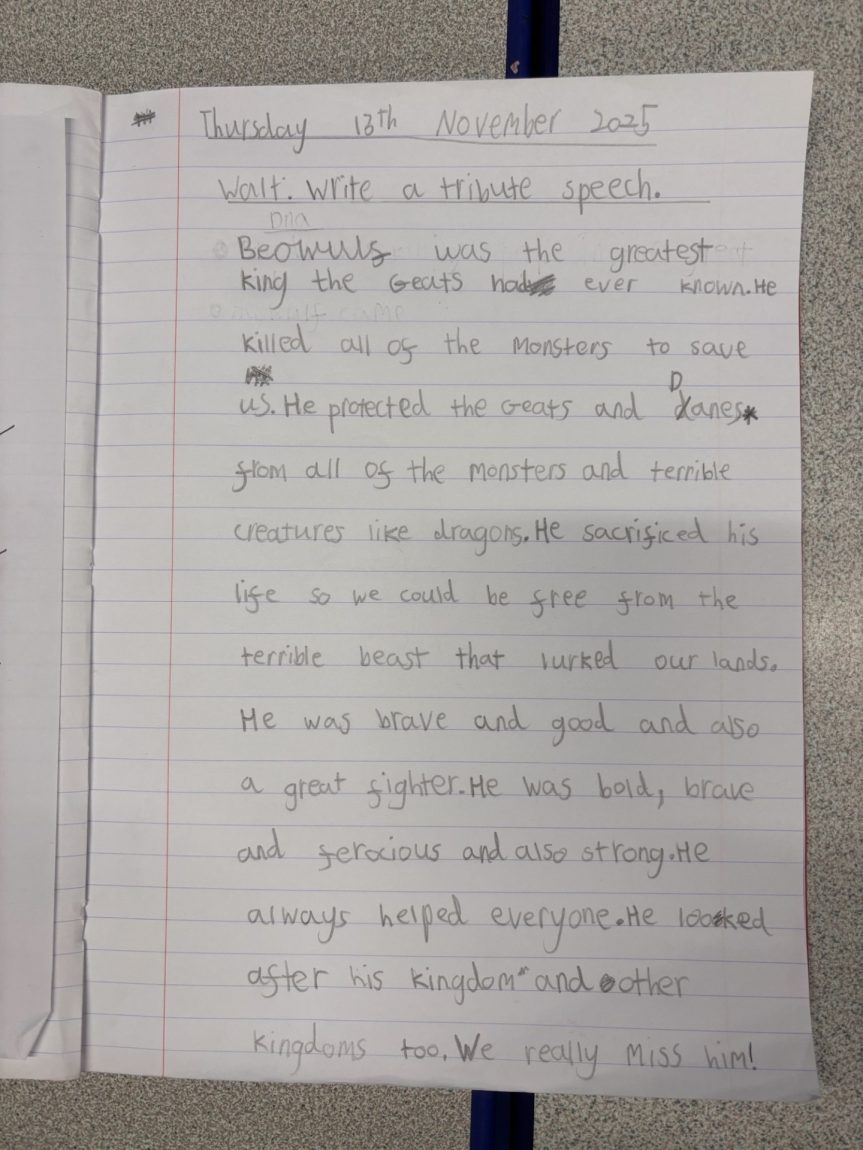 Thursday 13th November 2025
Walt: write a tribute speech.
Beowulf was the greatest
king the Geats had ever known. He
killed all of the monsters to save
us. He protected the Geats and Danes
from all of the monsters and terrible
creatures like dragons. He sacrificed his
life so we could be free from the
terrible beast that lurked our lands.
He was brave and good and also
a great fighter. He was bold, brave
and ferocious and also strong. He
always helped everyone. He looked
after his kingdom and other
kingdoms too. We really miss him!